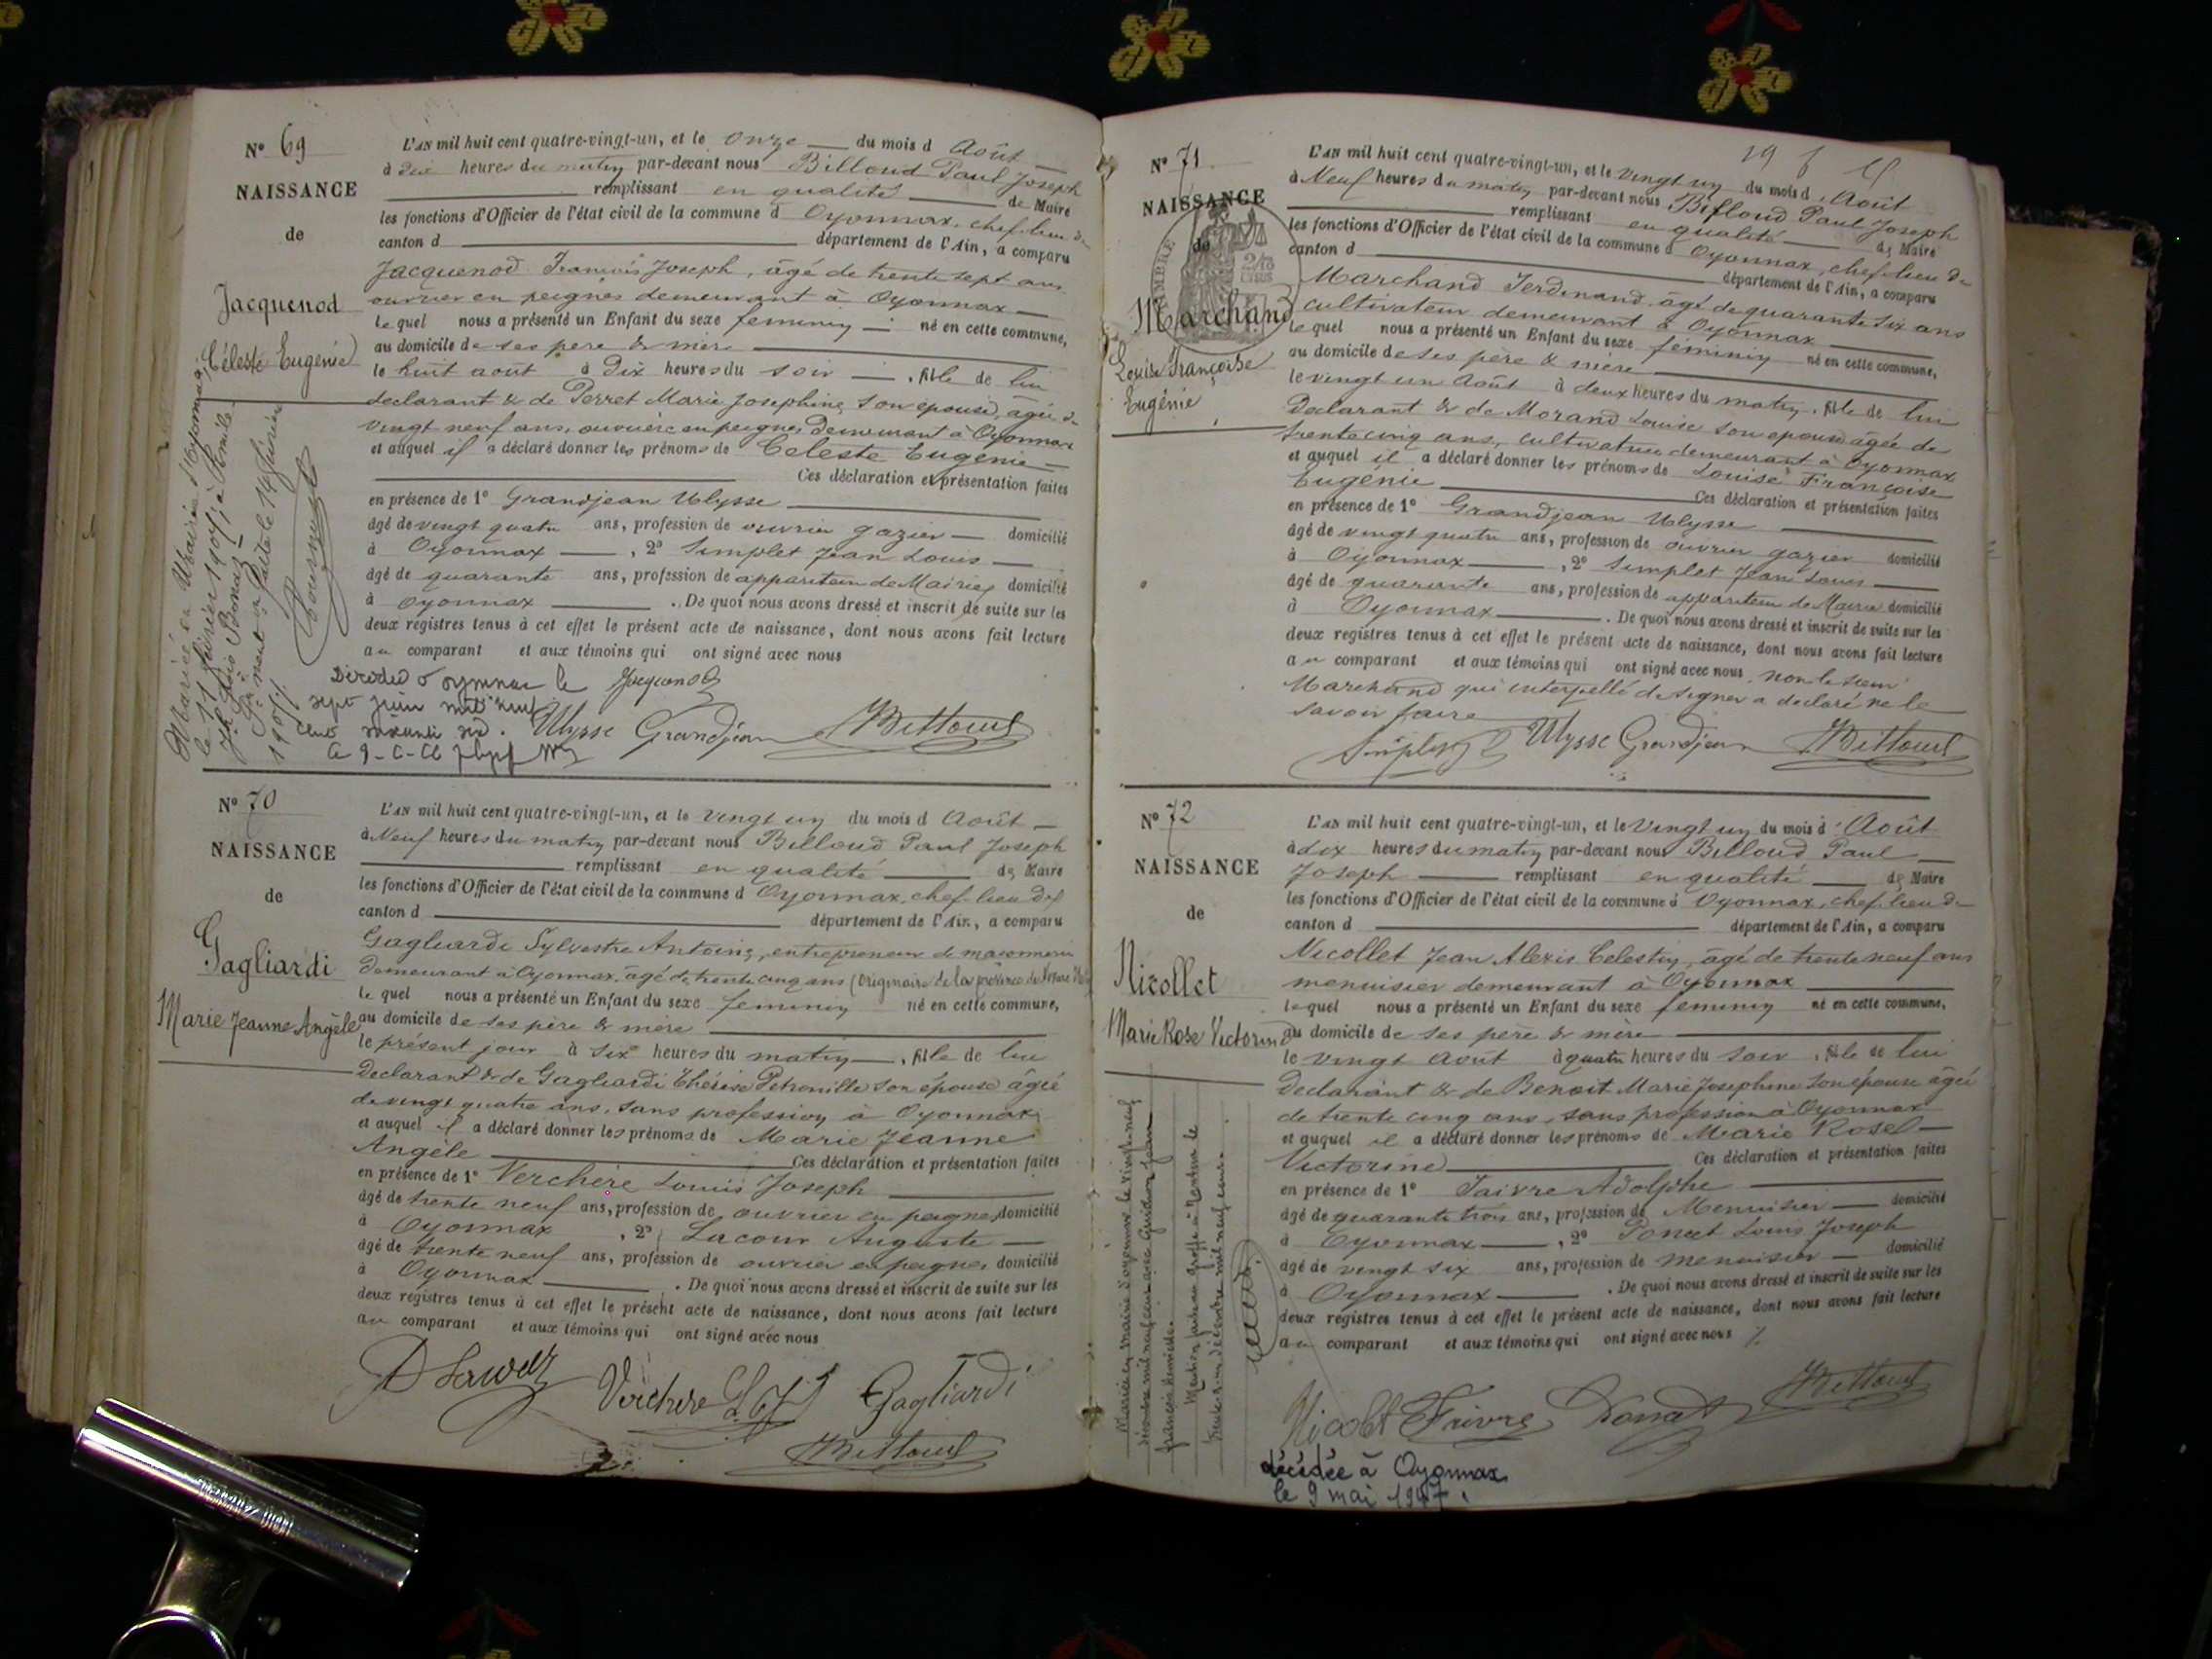 N° 69
NAISSANCE
de
Jacquenod
Céleste Eugénie
L'AN mil huit cent quatre-vingt-un, et le onze du mois d Août
à dix heures du matin par-devant nous Billoud Paul Joseph
remplissant en qualité de Maire
les fonctions d'Officier de l'état civil de la commune d Oyonnax, chef-lieu de
canton d département de l'Ain, a comparu
Jacquenod François Joseph, âgé de trente sept ans
ouvrier en peignes demeurant à Oyonnax
lequel nous a présenté un Enfant du sexe feminin né en cette commune,
au domicile de ses père & mère
le huit août à dix heures du soir, fille de lui
declarant & de Perret Marie Josephine son épouse, âgée de
vingt neuf ans, ouvrière en peignes demeurant à Oyonnax
et auquel il a déclaré donner les prénoms de Celeste Eugenie
Ces déclaration et présentation faites
en présence de 1° Grandjean Ulysse
âgé de vingt quatre ans, profession de ouvrier gazier domicilié
à Oyonnax, 2° Simplet Jean Louis
âgé de quarante ans, profession de appariteur de Mairie domicilié
à Oyonnax. De quoi nous avons dressé et inscrit de suite sur les
deux registres tenus à cet effet le présent acte de naissance, dont nous avons fait lecture
au comparant et aux témoins qui ont signé avec nous
Mariée en Mairie d'Oyonnax
le 11 février 1905 à Emile
1905
Décédée à Oyonnax le Jacquenod
sept juin mil neuf
cent
Ulysse Grandjean
N° 70
NAISSANCE
de
Gagliardi
Marie Jeanne Angèle
L'AN mil huit cent quatre-vingt-un, et le vingt un du mois d Août
à Neuf heures du matin par-devant nous Billoud Paul Joseph
remplissant en qualité de Maire
les fonctions d'Officier de l'état civil de la commune d Oyonnax, chef-lieu de
canton d département de l'Ain, a comparu
Gagliardi Sylvestre Antoine, entrepreneur de maçonnerie
demeurant à Oyonnax, âgé de trente cinq ans (originaire de la province de
lequel nous a présenté un Enfant du sexe feminin né en cette commune,
au domicile de ses père & mère
le présent jour à six heures du matin, fille de lui
declarant & de Gagliardi Thérèse Petronille son épouse âgée
de vingt quatre ans, sans profession à Oyonnax
et auquel il a déclaré donner les prénoms de Marie Jeanne
Angèle Ces déclaration et présentation faites
en présence de 1° Verchère Louis Joseph
âgé de trente neuf ans, profession de ouvrier en peignes domicilié
à Oyonnax, 2° Lacour Auguste
âgé de trente neuf ans, profession de ouvrier en peignes domicilié
à Oyonnax. De quoi nous avons dressé et inscrit de suite sur les
deux registres tenus à cet effet le présent acte de naissance, dont nous avons fait lecture
au comparant et aux témoins qui ont signé avec nous
Verchère Gagliardi
N° 71
NAISSANCE
de
Marchand
Louise Françoise
Eugénie
L'AN mil huit cent quatre-vingt-un, et le vingt un du mois d Août
à Neuf heures du matin par-devant nous Billoud Paul Joseph
remplissant en qualité de Maire
les fonctions d'Officier de l'état civil de la commune d Oyonnax, chef-lieu de
canton d département de l'Ain, a comparu
Marchand Ferdinand, âgé de quarante six ans
cultivateur demeurant à Oyonnax
lequel nous a présenté un Enfant du sexe féminin né en cette commune,
au domicile de ses père & mère
le vingt un Août à deux heures du matin, fille de lui
Declarant & de Morand Louise son épouse âgée de
trente cinq ans, cultivatrice demeurant à Oyonnax
et auquel il a déclaré donner les prénoms de Louise Françoise
Eugénie Ces déclaration et présentation faites
en présence de 1° Grandjean Ulysse
âgé de vingt quatre ans, profession de ouvrier gazier domicilié
à Oyonnax, 2° Simplet Jean Louis
âgé de quarante ans, profession de appariteur de Mairie domicilié
à Oyonnax. De quoi nous avons dressé et inscrit de suite sur les
deux registres tenus à cet effet le présent acte de naissance, dont nous avons fait lecture
au comparant et aux témoins qui ont signé avec nous, non le sieur
Marchand qui interpellé de signer a declaré ne le
savoir faire
Simplet Ulysse Grandjean
N° 72
NAISSANCE
de
Nicollet
Marie Rose Victorine
L'AN mil huit cent quatre-vingt-un, et le vingt un du mois d Août
à dix heures du matin par-devant nous Billoud Paul
Joseph remplissant en qualité de Maire
les fonctions d'Officier de l'état civil de la commune d Oyonnax, chef-lieu de
canton d département de l'Ain, a comparu
Nicollet Jean Alexis Celestin, âgé de trente neuf ans
menuisier demeurant à Oyonnax
lequel nous a présenté un Enfant du sexe feminin né en cette commune,
au domicile de ses père & mère
le vingt Août à quatre heures du soir, fille de lui
Declarant & de Benoit Marie Josephine son épouse âgée
de trente cinq ans, sans profession à Oyonnax
et auquel il a déclaré donner les prénoms de Marie Rose
Victorine Ces déclaration et présentation faites
en présence de 1° Faivre Adolphe
âgé de quarante trois ans, profession de Menuisier domicilié
à Oyonnax, 2° Poncet Louis Joseph
âgé de vingt six ans, profession de menuisier domicilié
à Oyonnax. De quoi nous avons dressé et inscrit de suite sur les
deux registres tenus à cet effet le présent acte de naissance, dont nous avons fait lecture
au comparant et aux témoins qui ont signé avec nous
Mariée en mairie d'Oyonnax le vingt-neuf
décembre mil neuf cent
Mention faite au greffe à Nantua le
trente un décembre mil neuf cent
Nicollet Faivre Poncet
décédée à Oyonnax
le 9 mai 1947.